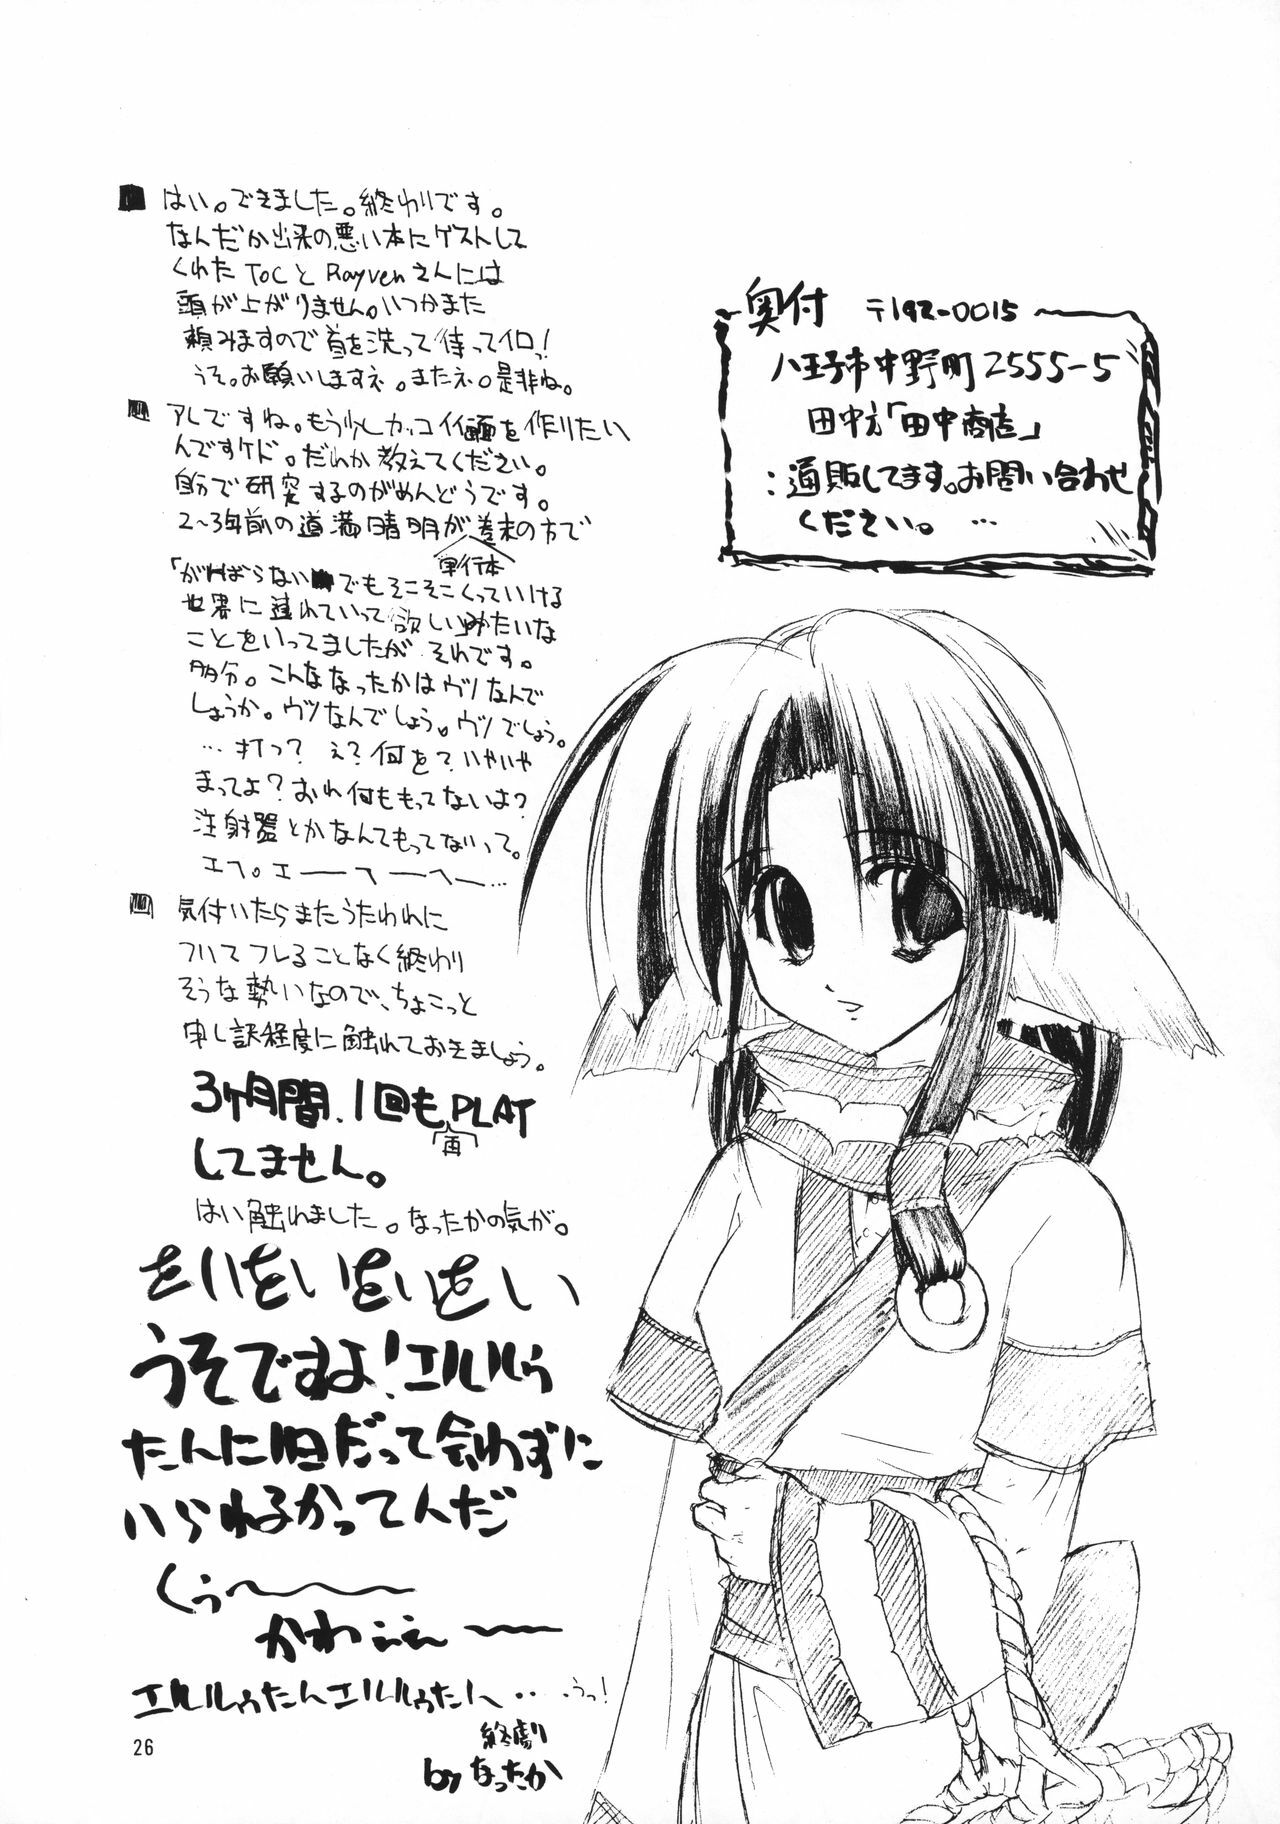 はい。できました。終わりです。
なんだか出来の悪い本にゲストして
くれたTOCとRayvenさんには
頭が上がりません。いつかまた
頼みますので首を洗って待ってイロッ!
うそ。お願いしますネ。またネ。是非ね。
アレですね。もう少しカッコイイ画面を作りたい
んですケド。だれか教えてください。
自分で研究するのがめんどうです。
2〜3年前の道満晴明が巻末の方で
単行本
「がんばらないでもそこそこくっていける
世界に連れていって欲しいみたいな
ことをいってましたが それです。
多分。こんななったかはウソなんで
しょうか。ウソなんでしょう。ウソでしょう。
…打って? え?何を?いやいや
まってよ?おれ何ももってないよ?
注射器とかなんてもってないって。
エ?。エーーへーーへー…
気付いたらまたうたわれに
ついてフレることなく終わり
そうな勢いなので、ちょこっと
申し訳程度に触れておきましょう。
3ヶ月間、1回もPLAY
再
してません。
はい触れました。なったかの気が。
をいをいをいをい
うそですよ!エルルゥ
たんに1日だって会わずに
いられるかってんだ
くぅ〜
かわぇぇ〜
エルルゥたんエルルゥたん・・・・うっ!
終劇
by なったか
26
奥付 〒192-0015
八王子市中野町2555-5
田中方「田中商店」
:通販してます。お問い合わせ
ください。…